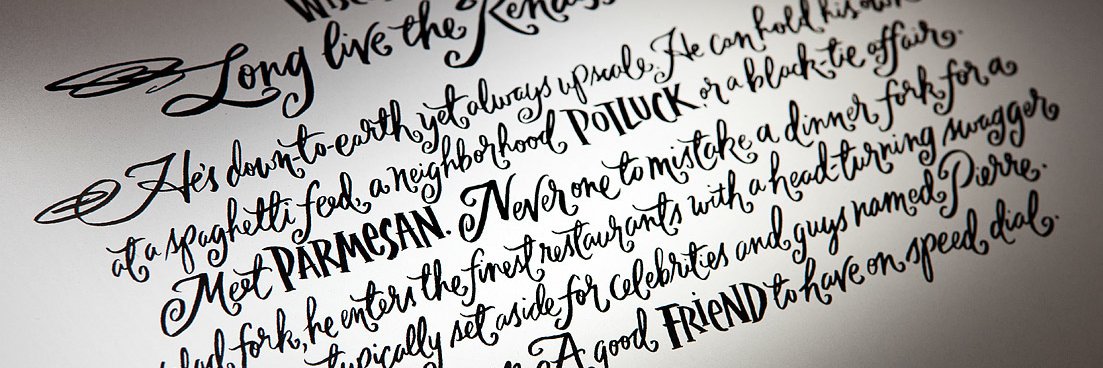 Long live the
He's down-to-earth yet always upscale. He can hold his own
at a spaghetti feed, a neighborhood POTLUCK. or a black-tie affair.
Meet PARMESAN. Never one to mistake a dinner fork for a
fork, he enters the finest restaurants with a head-turning swagger
typically set aside for celebrities and guys named Pierre.
A good FRIEND to have on speed dial.